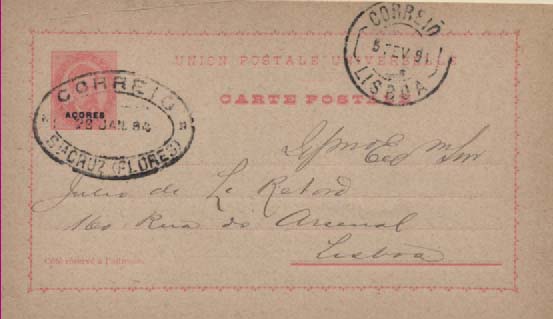 UNION POSTALE UNIVERSELLE
CARTE POSTALE
CORREIO
5 FEV 91
LISBOA
CORREIO
AÇORES
28 JAN.
STA CRUZ (FLORES)
Julio de Le Retord
160 Rua do Arsenal
Lisboa
Côté réservé à l'adresse.